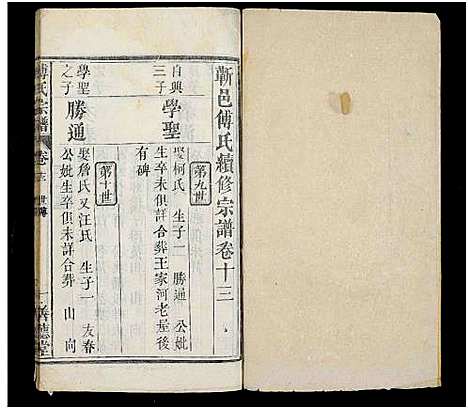 蘄邑傅氏續修宗譜卷十三
第九世
自興三子
學聖
娶柯氏 生子一 勝通 公妣
生卒未俱詳合葬王家河老屋後
有碑
第十世
學聖之子
勝通
娶詹氏又汪氏 生子一 友春
公妣生卒俱未詳合葬 山 向
傅氏宗譜
卷
世傳